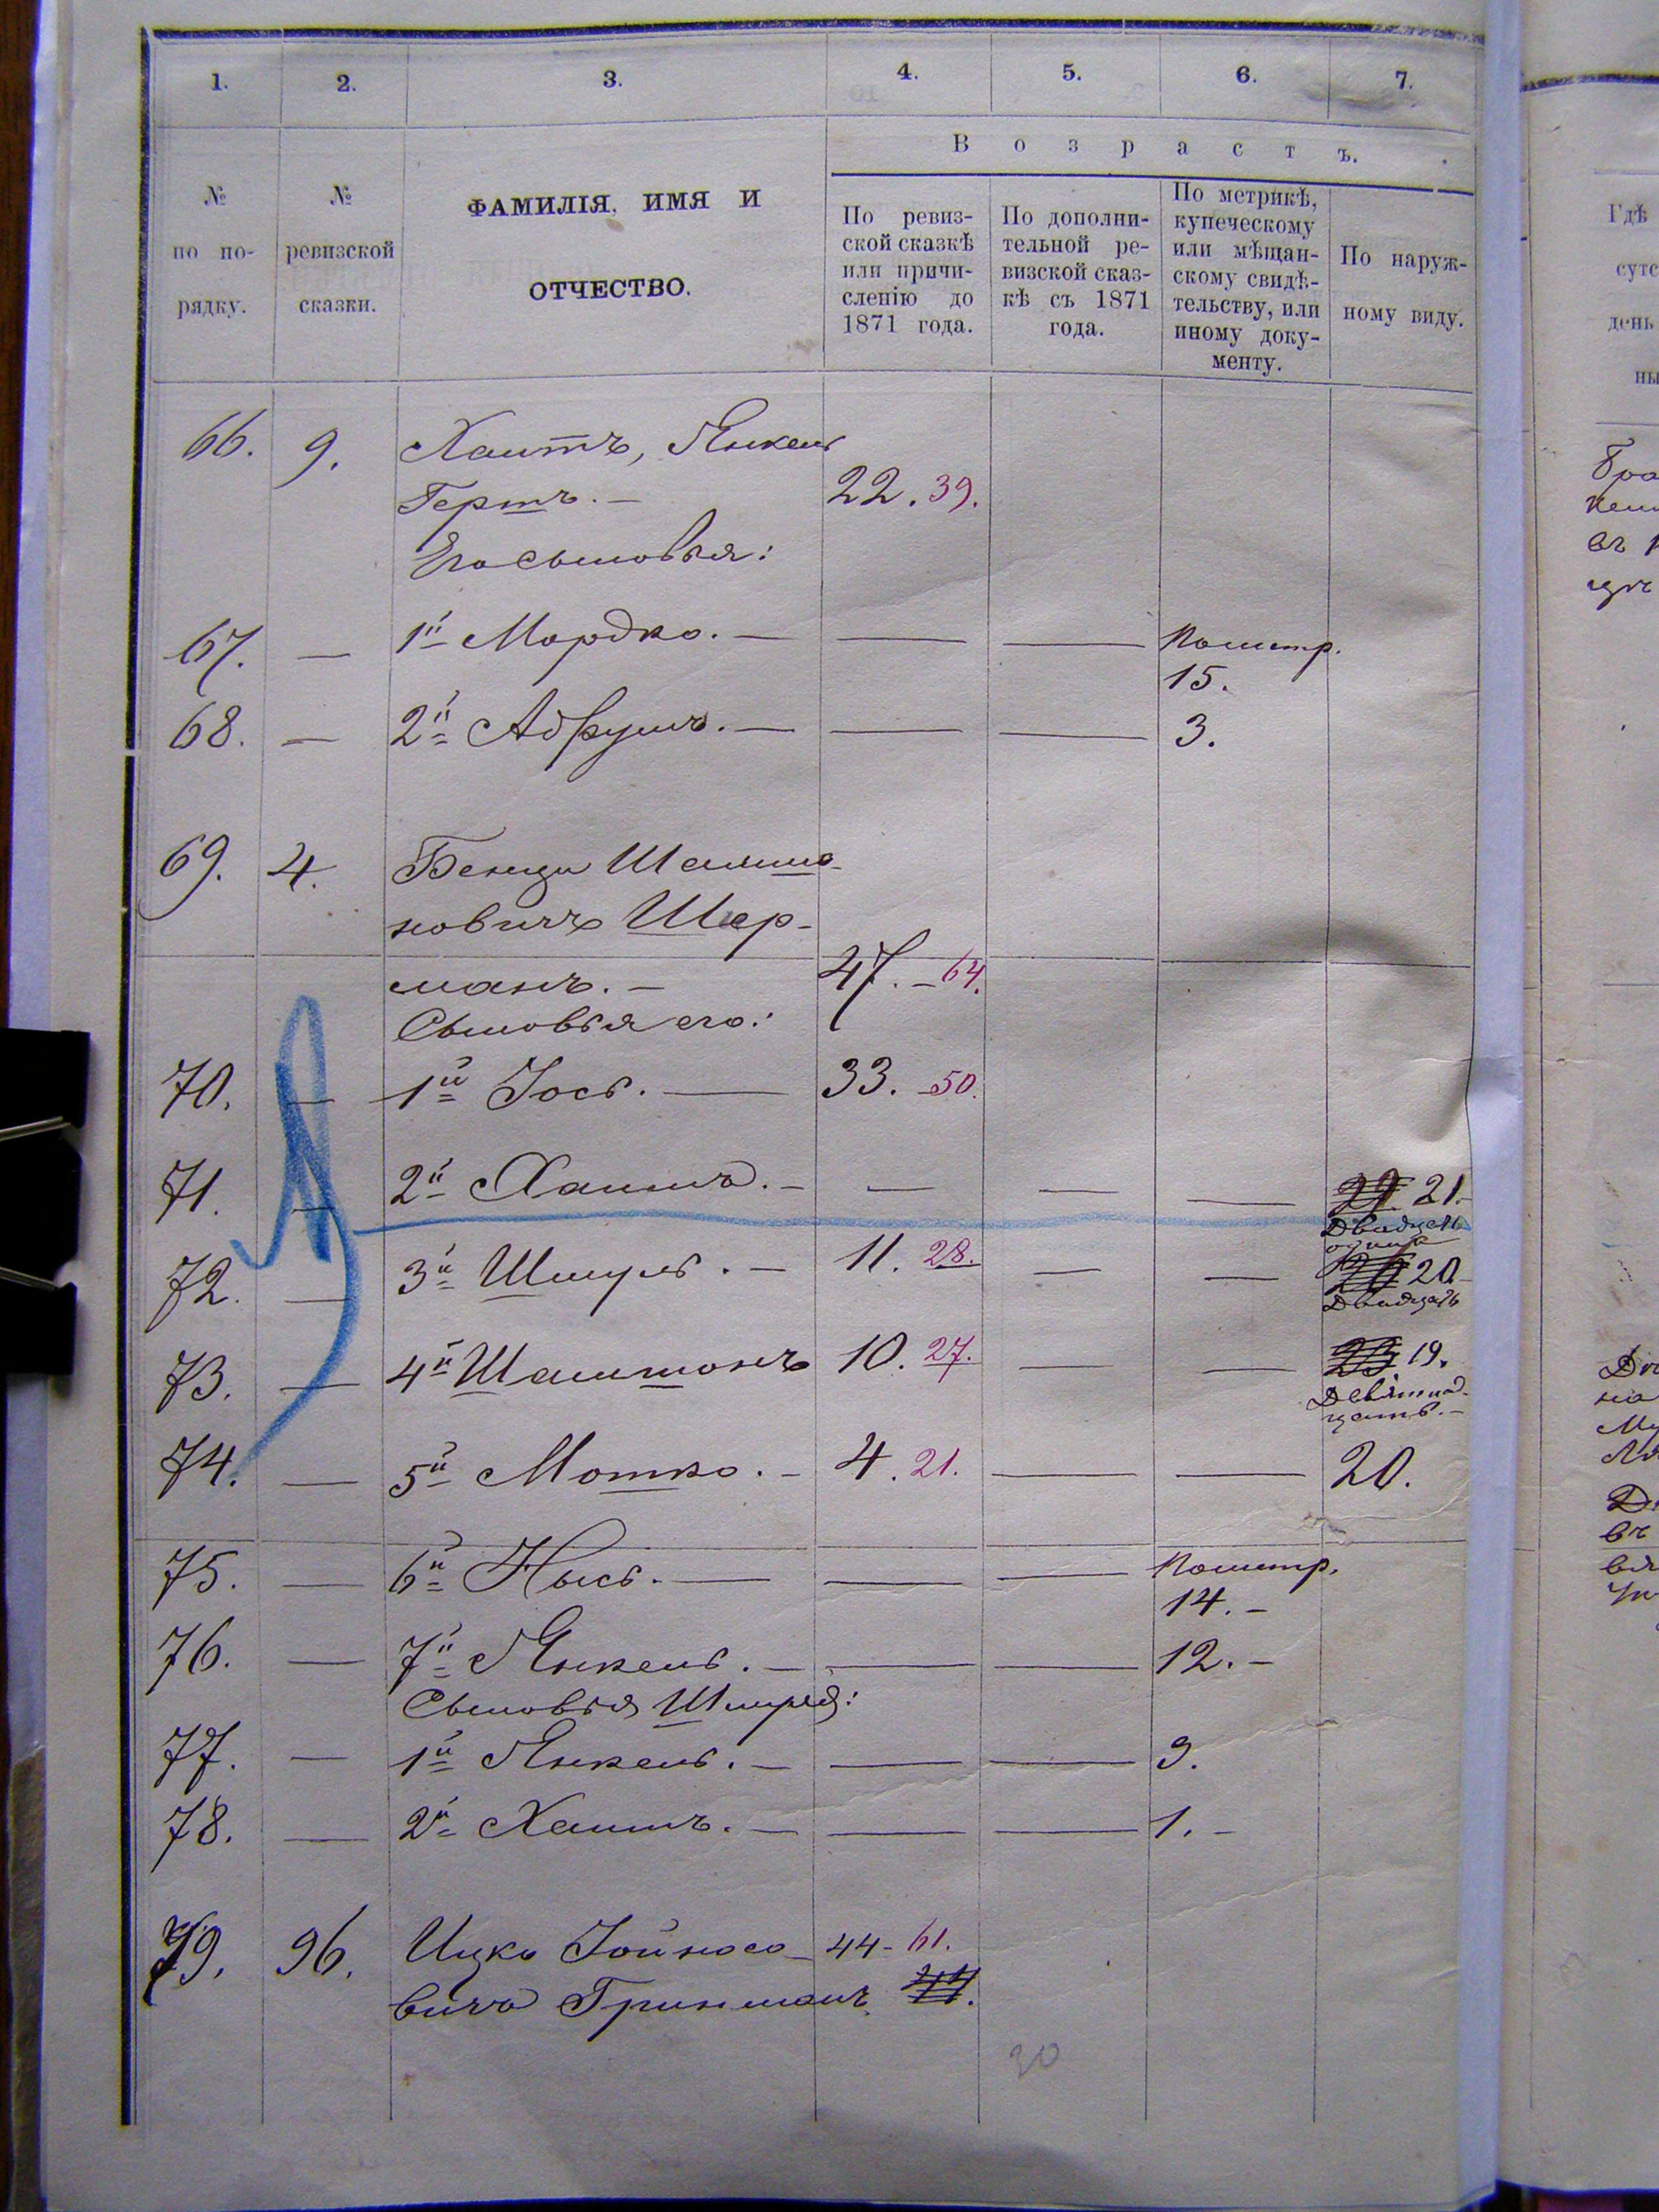 1. 2. 3. 4. 5. 6. 7.
В о з р а с т ъ.
№ по по-
рядку.
№
ревизской
сказки.
ФАМИЛІЯ, ИМЯ И
ОТЧЕСТВО.
По ревиз-
ской сказкѣ
или причи-
сленію до
1871 года.
По дополни-
тельной ре-
визской сказ-
кѣ съ 1871
года.
По метрикѣ,
купеческому
или мѣщан-
скому свидѣ-
тельству, или
иному доку-
менту.
По наруж-
ному виду.
Гдѣ
сутс
день
ны
66. 9. Хаитъ, Янкель
Гершъ. — 22. 39.
Его сыновья:
67. — 1й Мордко. — — — Пометр.
15.
68. — 2й Абрумъ. — — — 3.
69. 4. Бенци Шлиомо-
новичъ Шер-
манъ. — 47. — 64.
Сыновья его:
70. — 1й Іось. — 33. — 50.
71. — 2й Хаимъ. — — — — 21.
Двадцать
один
72. — 3й Шмуль. — 11. 28. — — 20.
Двадцать
73. — 4й Шлиомонъ 10. 27. — — 19.
Девятнад-
цать. —
74. — 5й Мошко. — 4. 21. — — 20.
75. — 6й Нысь. — — — Пометр.
14. —
76. — 7й Янкель. — — — 12. —
Сыновья Шмуля:
77. — 1й Янкель. — — — 9.
78. — 2й Хаимъ. — — — 1. —
79. 96. Ицко Іойносо- 44 - 61.
вичъ Гринманъ.
30